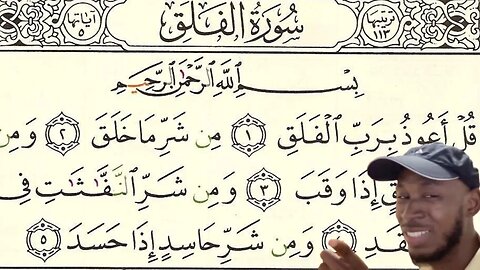 ترتيبها ١١٣ سُورَةُ الفَلَقِ آياتها ٥
بِسْمِ ٱللَّهِ ٱلرَّحْمَٰنِ ٱلرَّحِيمِ
قُلْ أَعُوذُ بِرَبِّ ٱلْفَلَقِ ١ مِن شَرِّ مَا خَلَقَ ٢ وَمِن
إِذَا وَقَبَ ٣ وَمِن شَرِّ ٱلنَّفَّٰثَٰتِ فِى
وَمِن شَرِّ حَاسِدٍ إِذَا حَسَدَ ٥